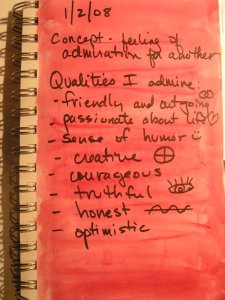 1/2/08
Concept - feeling of
admiration for another
Qualities I admire:
- friendly and outgoing
- passionate about life
- sense of humor
- creative
- courageous
- truthful
- honest
- optimistic